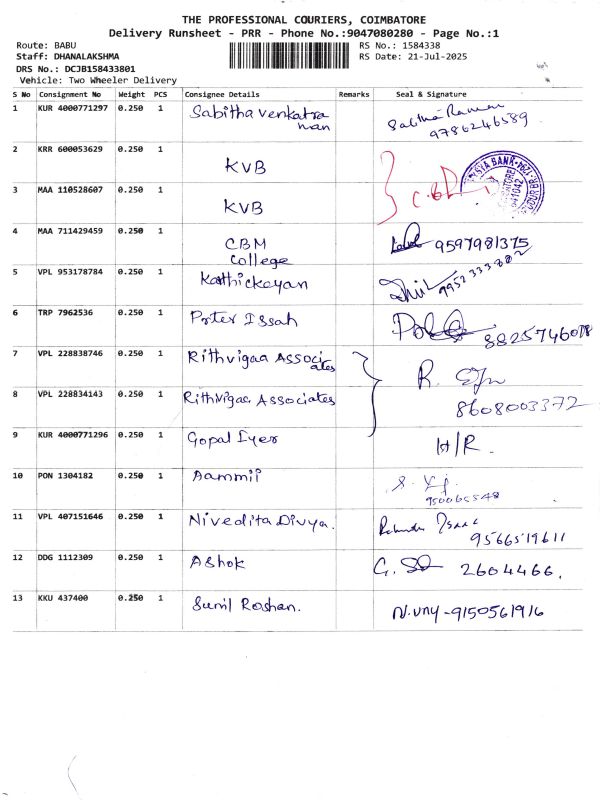 THE PROFESSIONAL COURIERS, COIMBATORE
Delivery Runsheet - PRR - Phone No.:9047080280 - Page No.:1
Route: BABU
Staff: DHANALAKSHMA
DRS No.: DCJB158433801
Vehicle: Two Wheeler Delivery
RS No.: 1584338
RS Date: 21-Jul-2025
S No Consignment No Weight PCS Consignee Details Remarks Seal & Signature
1 KUR 4000771297 0.250 1 Sabitha Venkatra
man
9786246589
2 KRR 600053629 0.250 1 KVB
3 MAA 110528607 0.250 1 KVB
4 MAA 711429459 0.250 1 CBM
College
9597981375
5 VPL 953178784 0.250 1 Kathickeyan
9952333802
6 TRP 7962536 0.250 1 Peter Issah
8825746078
7 VPL 228838746 0.250 1 Rithvigaa Associ
ates
8 VPL 228834143 0.250 1 Rithvigaa Associates
8608003372
9 KUR 4000771296 0.250 1 Gopal Iyer
10 PON 1304182 0.250 1 Aammii
11 VPL 407151646 0.250 1 Nivedita Divya.
9566519611
12 DDG 1112309 0.250 1 Ashok
2604466.
13 KKU 437400 0.250 1 Sunil Roshan.
9150561916